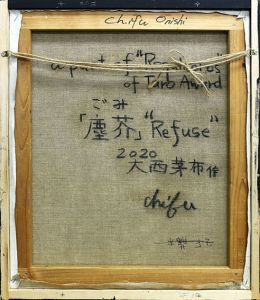 Chifu Onishi
a part of "
of Taro Award
ごみ
「塵芥」"Refuse"
2020
大西茅布作
chifu